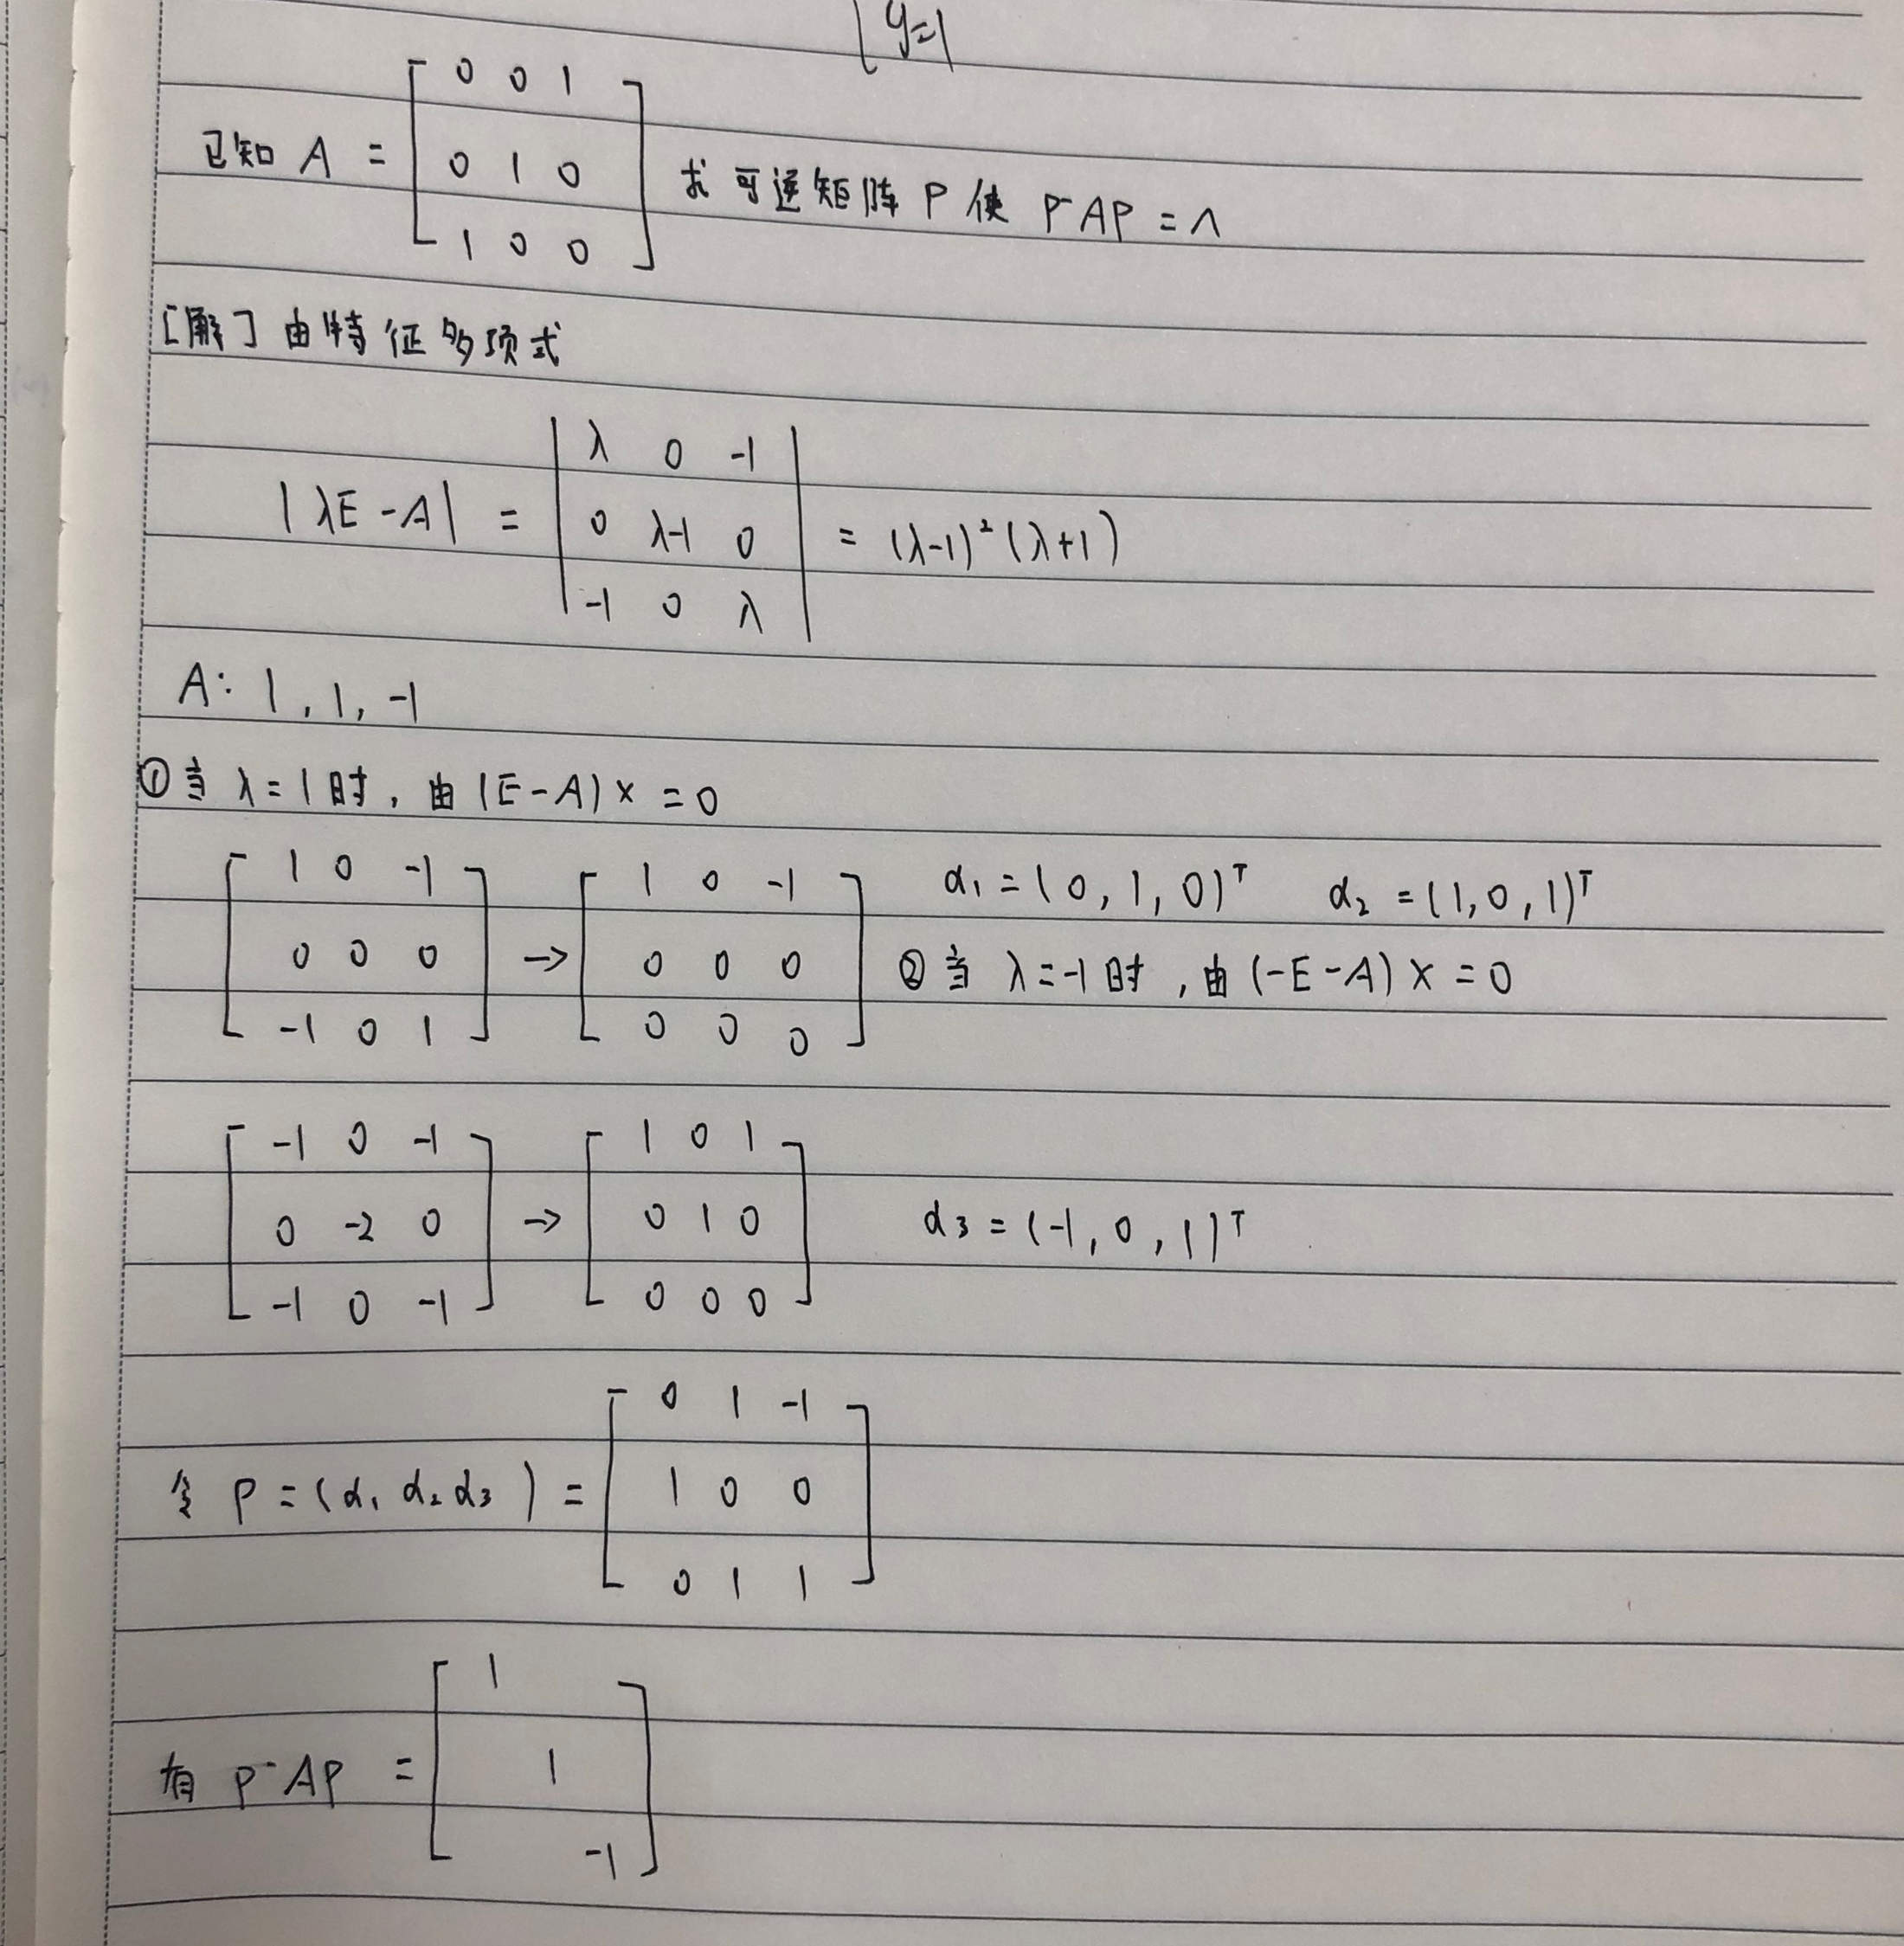 y=1
已知 A = [ 0 0 1 ; 0 1 0 ; 1 0 0 ] 求可逆矩阵 P 使 P⁻AP = Λ
[解] 由特征多项式
|λE-A| = | λ 0 -1 ; 0 λ-1 0 ; -1 0 λ | = (λ-1)²(λ+1)
A: 1, 1, -1
① 当 λ=1 时, 由 (E-A)x=0
[ 1 0 -1 ; 0 0 0 ; -1 0 1 ] → [ 1 0 -1 ; 0 0 0 ; 0 0 0 ] α₁=(0,1,0)ᵀ α₂=(1,0,1)ᵀ
② 当 λ=-1 时, 由 (-E-A)x=0
[ -1 0 -1 ; 0 -2 0 ; -1 0 -1 ] → [ 1 0 1 ; 0 1 0 ; 0 0 0 ] α₃=(-1,0,1)ᵀ
令 P=(α₁ α₂ α₃) = [ 0 1 -1 ; 1 0 0 ; 0 1 1 ]
有 P⁻AP = [ 1 ; 1 ; -1 ]